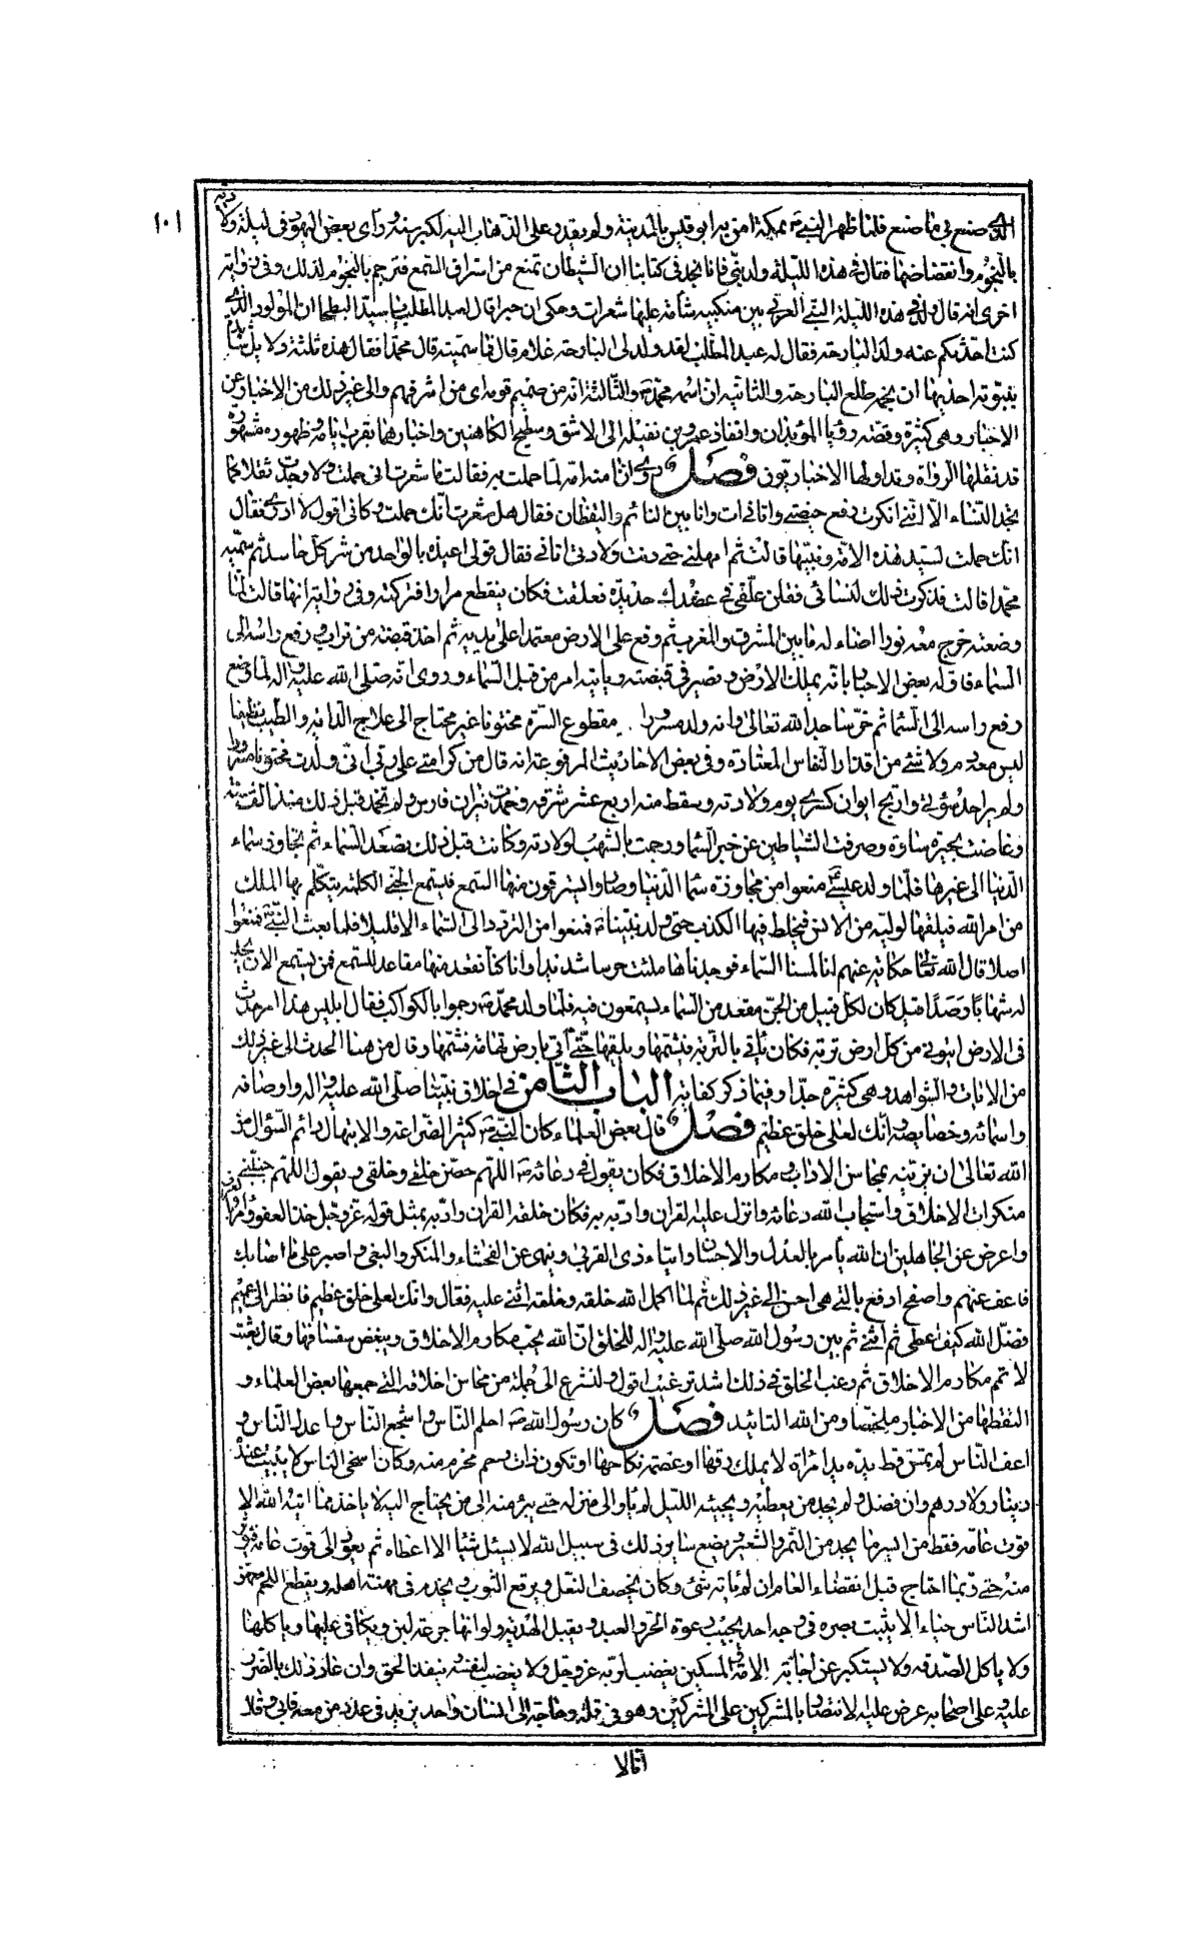 ١٠١
الذي صنع بي ما صنع فلما ظهر النبي ص بمكة امن به ابو قيس بالمدينة ولم يقدر على الذهاب اليه لكبر سنه وراى بعض اليهود في ليلة ولادته
بالنجوم وانقضاضها فقال في هذه الليلة ولد نبي فانا نجد في كتابنا ان الشيطان تمنع من استراق السمع فترجم بالنجوم لذلك وفي رواية
اخرى انه قال ولد في هذه الليلة النبي العربي بين منكبيه شامة عليها شعرات وحكى ان حبرا قال لعبد المطلب يا سيد البطحا ان المولود الذي
كنت احدثكم عنه ولد البارحة فقال له عبد المطلب لقد ولد لي البارحة غلام قال فما سميته قال محمدا فقال هذه ثلثة دلايل شاهدة
بنبوته احديها ان نجمه طلع البارحة والثانية ان اسمه محمد ص والثالثة انه من صميم قومه اي من اشرفهم والى غير ذلك من الاخبار عن
الاخبار وهي كثيرة وقصة رؤيا الموبذان وانفاذ عمرو بن نفيلة الى الاشق وسطيح الكاهنين واخبارهما بقرب ايامه وظهوره مشهورة
قد نقلها الرواة وتداولها الاخباريون فصل روي ان آمنة امه لما حملت به فقالت ما شعرت اني حملت ولا وجدت ثقلا كما
يجد النساء الا انني انكرت رفع حيضتي واتاني ات وانا بين النائم واليقظان فقال هل شعرت انك حملت فكاني اقول لا ادري فقال
انك حملت لسيد هذه الامة ونبيها قالت ثم امهلني حتى دنت ولادتي اتاني فقال قولي اعيذه بالواحد من شر كل حاسد ثم سميه
محمدا قالت فذكرت ذلك لنسائي فقلن علقي في عضدك حديدة فعلقت فكان ينقطع مرارا فتركته وفي رواية انها قالت لما
وضعته خرج معه نور اضاء له ما بين المشرق والمغرب ثم وقع على الارض معتمدا على يديه ثم اخذ قبضة من تراب ورفع راسه الى
السماء فاوله بعض الاحبار بانه يملك الارض وتصير في قبضته وياتيه امر من قبل السماء وروى انه صلى الله عليه واله لما وضع
رفع راسه الى السماء ثم خر ساجدا لله تعالى وانه ولد مسرورا مقطوع السرة مختونا غير محتاج الى علاج الداية والطيب نظيفا
ليس معه دم ولا شئ من اقذار النفاس المعتادة وفي بعض الاحاديث المرفوعة انه قال من كرامتي على ربي اني ولدت مختونا مسرورا
ولم ير احد سؤتي وارتج ايوان كسرى يوم ولادته وسقط منه اربع عشر شرفة وخمدت نيران فارس ولم تخمد قبل ذلك منذ الف سنة
وغاضت بحيرة ساوة وصرفت الشياطين عن خبر السماء ورجمت بالشهب لولادته وكانت قبل ذلك يصعد السماء ثم يجاوز سماء
الدنيا الى غيرها فلما ولد عيسى منعوا من مجاوزة سما الدنيا وصاروا يسترقون منها السمع فيستمع الجني الكلمة يتكلم بها الملك
من امر الله فيلقها لوليه من الانس فيخلط فيها الكذب حتى ولد نبينا ص فمنعوا من التردد الى السماء الا قليلا فلما بعث النبي ص فمنعوا
اصلا قال الله تعالى حكاية عنهم انا لمسنا السماء فوجدناها ملئت حرسا شديدا وانا كنا نقعد منها مقاعد للسمع فمن يستمع الان يجد
له شهابا رصدا قيل كان لكل قبيل من الجن مقعد من السماء يستمعون فيه فلما ولد محمد ص رجموا بالكواكب فقال ابليس هذا امر حدث
في الارض ايتوني من كل ارض تربة فكان يأتي بالتربة فيشمها ويلقيها حتى اتي بارض تهامة فشمها وقال من هنا الحدث الى غير ذلك
من الايات والشواهد وهي كثيرة جدا وفيما ذكر كفاية الباب الثامن في اخلاق نبينا صلى الله عليه واله واوصافه
واسمائه وخصايصه وانك لعلى خلق عظيم فصل قال بعض العلماء كان النبي ص كثير الضراعة والابتهال دائم السؤال من
الله تعالى ان يزينه بمحاسن الاداب ومكارم الاخلاق فكان يقول في دعائه ص اللهم حسن خلقي وخلقي ويقول اللهم جنبني
منكرات الاخلاق واستجاب الله دعائه وانزل عليه القران وادبه به فكان خلقه القران وادبه بمثل قوله عز وجل خذ العفو وامر بالعرف
واعرض عن الجاهلين ان الله يامر بالعدل والاحسان وايتاء ذي القربى وينهى عن الفحشاء والمنكر والبغي واصبر على ما اصابك
فاعف عنهم واصفح ادفع بالتي هي احسن الى غير ذلك ثم لما اكمل الله خلقه وخلقه اثنى عليه فقال وانك لعلى خلق عظيم فانظر الى عميم
فضل الله كيف اعطى ثم اثنى ثم بين رسول الله صلى الله عليه واله للخلق ان الله يحب مكارم الاخلاق ويبغض سفسافها وقال بعثت
لاتمم مكارم الاخلاق ثم رغب الخلق في ذلك اشد ترغيب اقول ولنشرع الى جملة من محاسن اخلاقه التي جمعها بعض العلماء و
التقطها من الاخبار ملخصا ومن الله التائيد فصل كان رسول الله ص احلم الناس واشجع الناس واعدل الناس و
اعف الناس لم تمس قط يده يد امراة لا يملك رقها او عصمة نكاحها او تكون ذات رحم محرم منه وكان اسخى الناس لا يثبت عنده
دينار ولا درهم وان فضل ولم يجد من يعطيه ويجيئه الليل لم ياو الى منزله حتى يبرء منه الى من يحتاج اليه لا ياخذ مما اتيه الله الا
قوت عامه فقط من ايسر ما يجد من التمر والشعير ويضع ساير ذلك في سبيل الله لا يسئل شيئا الا اعطاه ثم يعود الى قوت عامه فيؤثر
منه حتى ربما احتاج قبل انقضاء العام ان لم ياته شئ وكان يخصف النعل ويرقع الثوب ويخدم في مهنة اهله ويقطع اللحم معهن
اشد الناس حياء الا يثبت بصره في وجه احد يجيب دعوة الحر والعبد ويقبل الهدية ولو انها جرعة لبن ويكافي عليها وياكلها
ولا ياكل الصدقة ولا يستكبر عن اجابة الامة والمسكين يغضب لربه عز وجل ولا يغضب لنفسه ينفذ الحق وان عاد ذلك بالضرر
عليه وعلى اصحابه عرض عليه الانتصار بالمشركين على المشركين وهو في قلة وحاجة الى انسان واحد يزيد في عدد من معه فابى وقال
انا لا